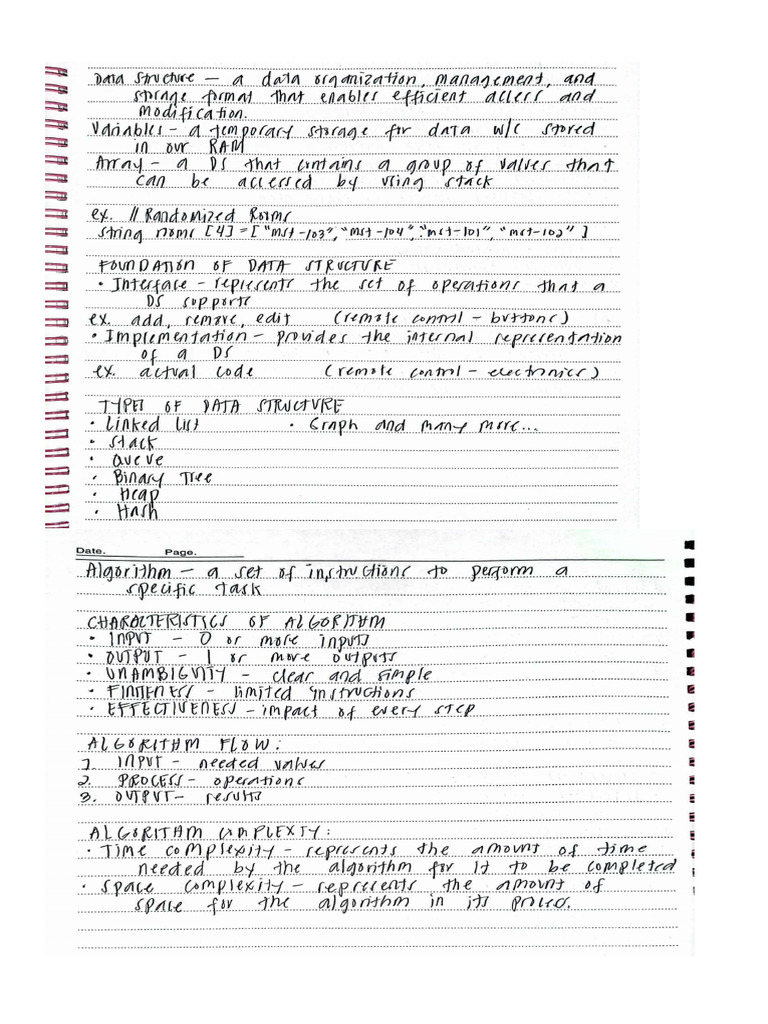 Data Structure – a data organization, management, and
storage format that enables efficient access and
modification.
Variables – a temporary storage for data w/c stored
in our RAM
Array – a DS that contains a group of values that
can be accessed by using stack
ex. // Randomized Rooms
string rooms [4] = [ "mst-103", "mst-104", "mst-101", "mst-102" ]
FOUNDATION OF DATA STRUCTURE
• Interface – represents the set of operations that a
DS supports
ex. add, remove, edit (remote control – buttons)
• Implementation – provides the internal representation
of a DS
ex. actual code (remote control – electronics)
TYPES OF DATA STRUCTURE
• Linked List • Graph and many more...
• Stack
• Queue
• Binary Tree
• Heap
• Hash
Date. Page.
Algorithm – a set of instructions to perform a
specific task
CHARACTERISTICS OF ALGORITHM
• INPUT – 0 or more inputs
• OUTPUT – 1 or more outputs
• UNAMBIGUITY – clear and simple
• FINITENESS – limited instructions
• EFFECTIVENESS – impact of every step
ALGORITHM FLOW:
1. INPUT – needed values
2. PROCESS – operations
3. OUTPUT – results
ALGORITHM COMPLEXTY:
• Time complexity – represents the amount of time
needed by the algorithm for it to be completed
• Space complexity – represents the amount of
space for the algorithm in its process.